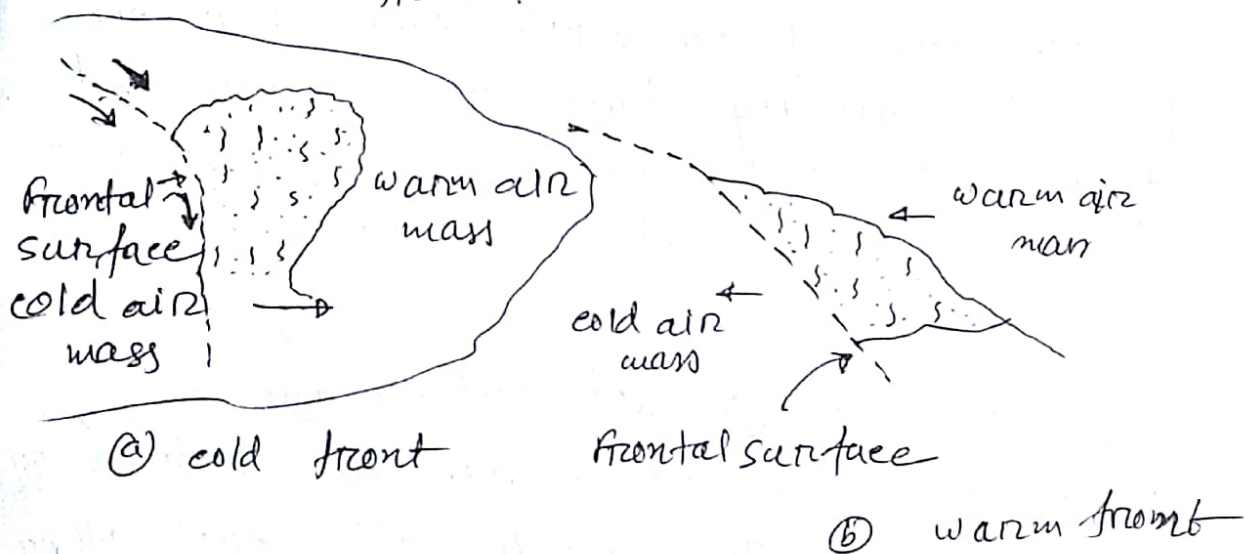 frontal
surface
cold air
mass
warm air
mass
(a) cold front
warm air
mass
cold air
mass
frontal surface
(b) warm fromt